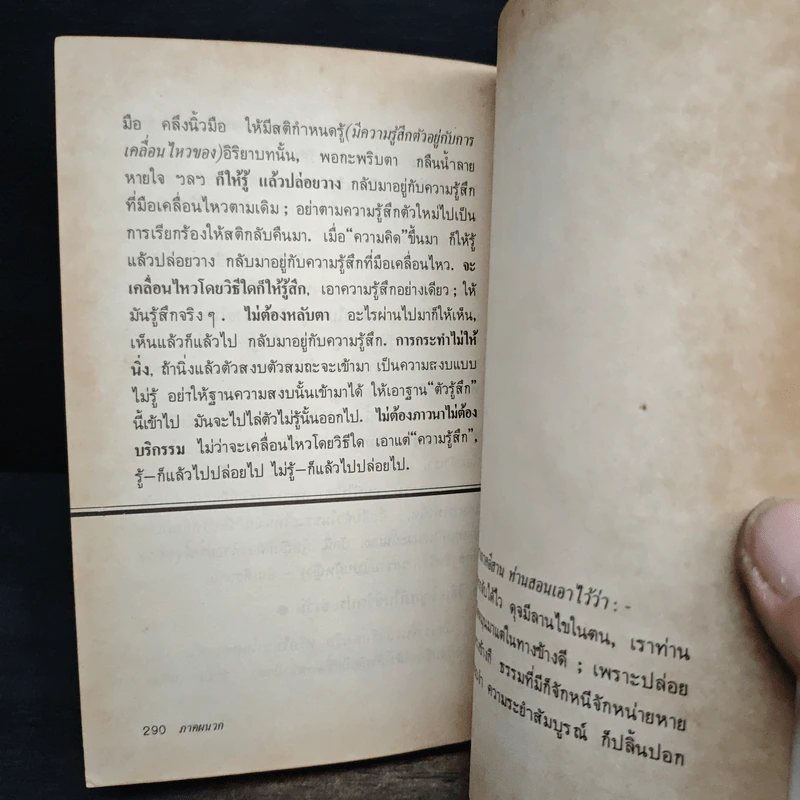 มือ คลึงนิ้วมือ ให้มีสติกำหนดรู้(มีความรู้สึกตัวอยู่กับการ
เคลื่อนไหวของ)อิริยาบทนั้น, พอกะพริบตา กลืนน้ำลาย
หายใจ ฯลฯ ก็ให้รู้ แล้วปล่อยวาง กลับมาอยู่กับความรู้สึก
ที่มือเคลื่อนไหวตามเดิม ; อย่าตามความรู้สึกตัวใหม่ไปเป็น
การเรียกร้องให้สติกลับคืนมา. เมื่อ“ความคิด”ขึ้นมา ก็ให้รู้
แล้วปล่อยวาง กลับมาอยู่กับความรู้สึกที่มือเคลื่อนไหว. จะ
เคลื่อนไหวโดยวิธีใดก็ให้รู้สึก, เอาความรู้สึกอย่างเดียว ; ให้
มันรู้สึกจริง ๆ . ไม่ต้องหลับตา อะไรผ่านไปมาก็ให้เห็น,
เห็นแล้วก็แล้วไป กลับมาอยู่กับความรู้สึก. การกระทำไม่ให้
นิ่ง, ถ้านิ่งแล้วตัวสงบตัวสมถะจะเข้ามา เป็นความสงบแบบ
ไม่รู้ อย่าให้ฐานความสงบนั้นเข้ามาได้ ให้เอาฐาน“ตัวรู้สึก”
นี้เข้าไป มันจะไปไล่ตัวไม่รู้นั้นออกไป. ไม่ต้องภาวนาไม่ต้อง
บริกรรม ไม่ว่าจะเคลื่อนไหวโดยวิธีใด เอาแต่“ความรู้สึก”,
รู้—ก็แล้วไปปล่อยไป ไม่รู้—ก็แล้วไปปล่อยไป.
290 ภาคผนวก
ท่านสอนเอาไว้ว่า : -
ดุจมีลานไขในตน, เราท่าน
ในทางข้างดี ; เพราะปล่อย
ธรรมที่มีก็จักหนีจักหน่ายหาย
ความระยำสัมบูรณ์ ก็ปลิ้นปอก